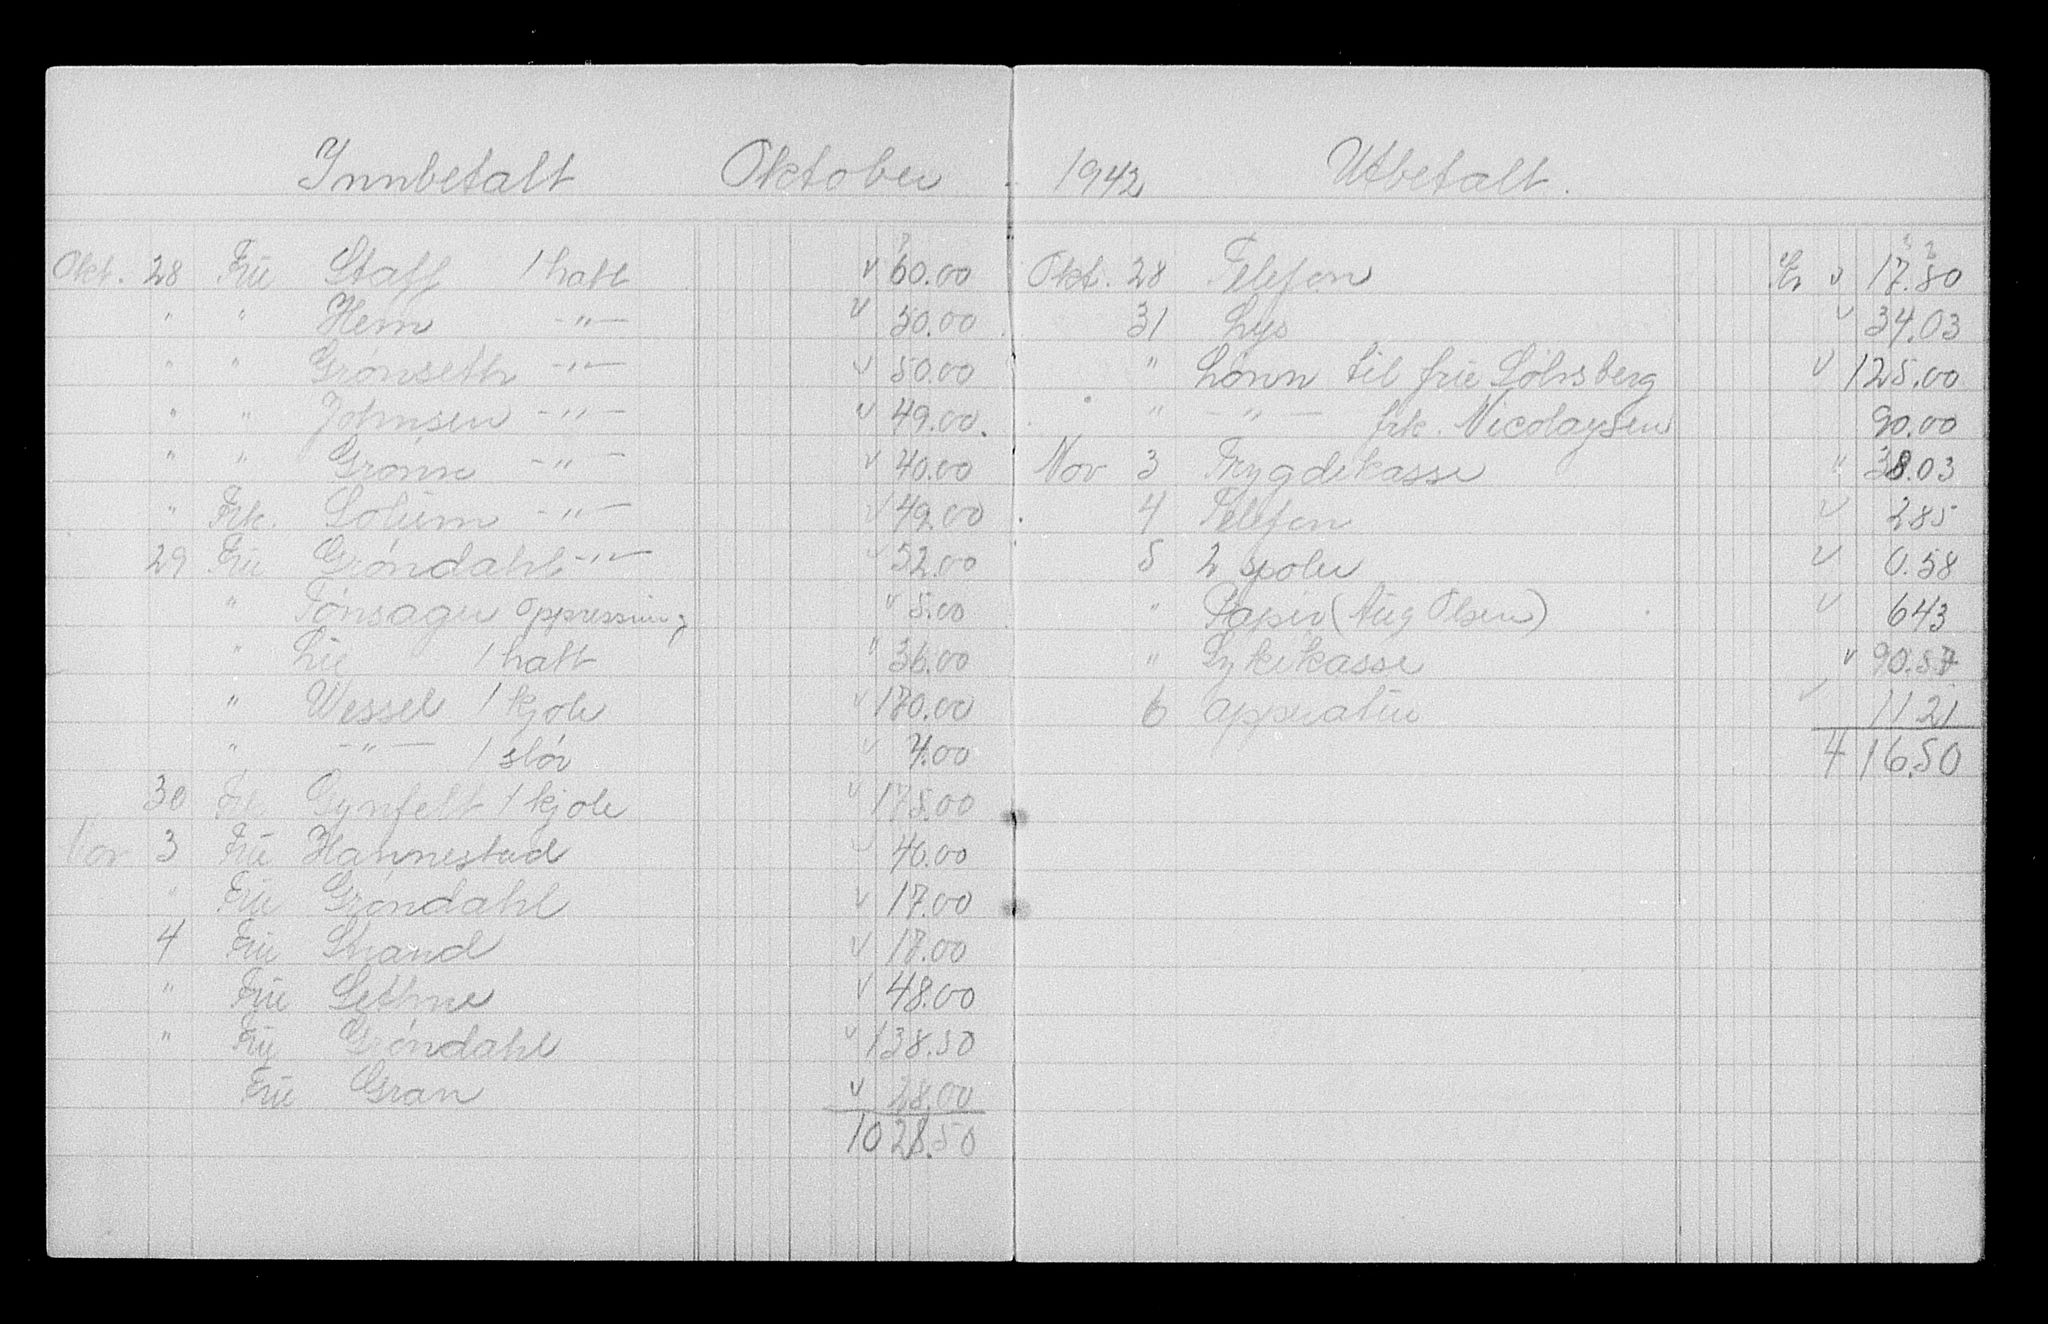 Innbetalt Oktober
Okt. 28 Frue Staff 1 hatt v 60.00
" " Hem -"- v 50.00
" " Grønseth -"- v 50.00
" " Johnsen -"- v 49.00.
" " Grønn -"- v 40.00
" Frk. Solum -"- v 49.00
29 Frue Grøndahl -"- v 52.00
" Tønsager oppressing v 5.00
" Lie 1 hatt " 36.00
" Wessel 1 kjole v 170.00
" -"- 1 slør v 4.00
30 Gynfelt 1 kjole v 175.00
Nov 3 Frue Hannestad v 40.00
" Frue Grøndahl v 17.00
4 Frue Strand v 17.00
" Frue Sethne v 48.00
" Fru Grøndahl v 138.50
Frue Gran v 28.00
1028.50
1942 Utbetalt.
Okt. 28 Telefon Kr v 17.80
31 Lys v 34.03
" Lønn til frue Løhsberg v 125.00
" -"- frk. Nicolaysen 90.00
Nov 3 Trygdekasse " 38.03
4 Telefon v 285
5 2 spoler v 0.58
" Papir (Aug Olsen) v 643
" Sykekasse v 90.57
6 apperatur v 11 21
416.50